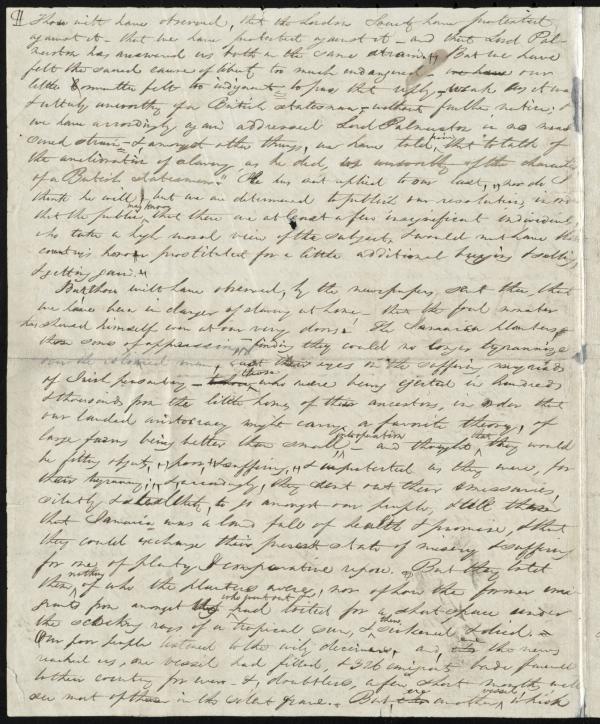 Thou wilt have observed, that the London Society have protested
against it – that we have protested against it – and that Lord Pal-
merston has answered us both in the same strain. But we have
felt the sacred cause of liberty too much endangered – our
little Committee felt too indignant – to pass that reply – weak as it was
& utterly unworthy of a British statesman – without further notice. &
we have accordingly again addressed Lord Palmerston in no mea-
sured strain – & amongst other things, we have told him, that to talk of
the amelioration of slavery as he did, is unworthy of the character
of a British statesman." He has not replied to our last, nor do I
think he will, but we are determined to publish our resolutions, in order
that the public may know that there are at least a few insignificant individuals
who take a high moral view of the subject, & would not have their
country's honor prostituted for a little additional buying & selling
& getting gain.
But thou wilt have observed, by the newspapers sent thee, that
we have been in danger of slavery at home – that the foul monster
has shewed himself even at our very doors! The Jamaica planters,
those sons of oppression – finding they could no longer tyrannize
over the coloured man, cast their eyes on the suffering myriads
of Irish peasantry – those who were being ejected in hundreds
& thousands from the little homes of their ancestors, in order that
our landed aristocracy might carry a favorite theory, of
large farms being better than small, into operation – and thought that they would
be fitting objects, poor, & suffering, & unprotected as they were, for
their tyranny; & accordingly, they sent out their emissaries,
silently & stealthily, to go amongst our people, & tell them
that Jamaica was a land full of health & promise, & that
they could exchange their present state of misery & suffering
for one of plenty & comparative repose. But they told
them nothing of who the planters were, nor of how the former emi-
grants from amongst us who went out had toiled for a short space under
the scorching rays of a tropical sun, & then sickened & died. –
Our poor people listened to the wily deceivers, and, ere the news
reached us, one vessel had filled, & 326 emigrants bade farewell
to their country for ever – & doubtless, a few short months will
see most of them in the silent grave. But ere another vessel, which